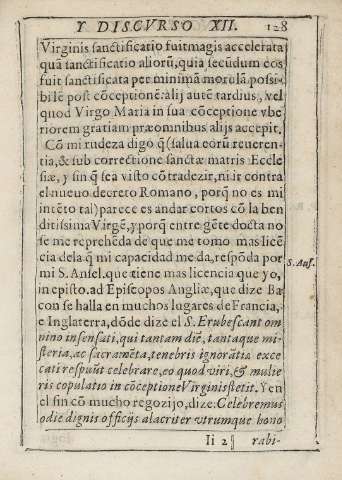 Y DISCVRSO XII. 128
Virginis sanctificatio fuit magis accelerata
quã sanctificatio aliorũ, quia secũdum eos
fuit sanctificata per minimã morulã possi-
bilẽ post cõceptionẽ: alij autẽ tardius, vel
quod Virgo Maria in sua cõceptione vbe
riorem gratiam præomnibus alijs accepit.
Cõ mi rudeza digo q̃ (salua eorũ reueren-
tia, & sub correctione sanctæ matris Eccle
siæ, y sin q̃ sea visto cõtradezir, ni ir contra
el nueuo decreto Romano, porq̃ no es mi
intẽto tal) parece es andar cortos cõ la ben
ditissima Virgẽ, y porq̃ entre gẽte docta no
se me reprehẽda de que me tomo mas licẽ
cia de la q̃ mi capacidad me da, respõda por
mi S. Ansel. que tiene mas licencia que yo,
S. Ans.
in episto. ad Episcopos Angliæ, que dize Ba
con se halla en muchos lugares de Francia,
e Inglaterra, dõde dize el S. Erubescant om
nino insensati, qui tantam diẽ, tantaque mi-
steria, ac sacramẽta, tenebris ignorãtiæ exce
cati respuũt celebrare, eo quod viri, & mulie
ris copulatio in cõceptione Virginis stetit. Y en
el sin cõ mucho regozijo, dize: Celebremus
odie dignis officijs alacriter vtrumque hono
Ii 2 rabi-